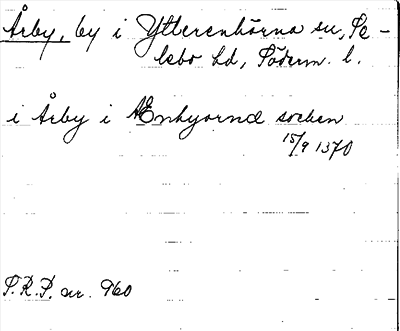 Årby, by i Ytterenhörna sn, Se-
lebo hd, Söderm. l.
i Årby i Ænhyornæ socken
15/9 1370
S.R.P. nr. 960